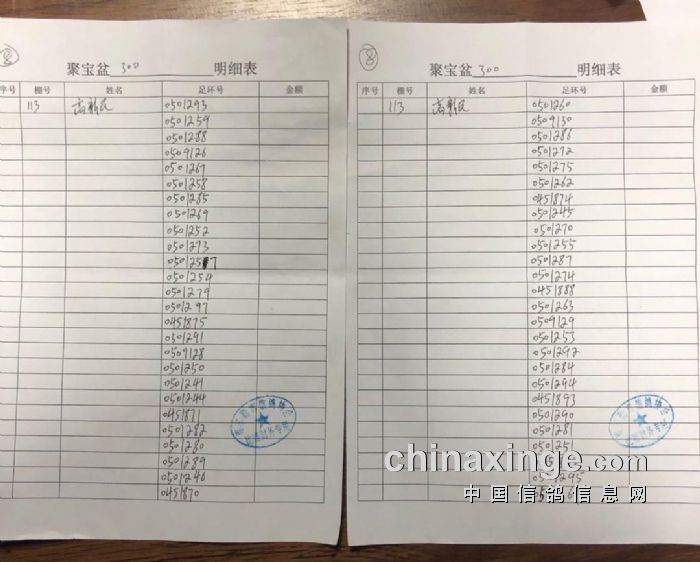 8
聚宝盆 300 明细表
序号 棚号 姓名 足环号 金额
113 高新民 0501293
0501259
0501288
0509126
0501267
0501258
0501285
0501269
0501252
0501273
0501257
0501254
0501279
0501297
0451875
0501291
0509128
0501250
0501241
0501244
0451871
0501282
0501280
0501289
0501246
0451870
8
聚宝盆 300 明细表
序号 棚号 姓名 足环号 金额
113 高新民 0501260
0509130
0501286
0501272
0501275
0501262
0451874
0501245
0501270
0501255
0501287
0501274
0451888
0501263
0509129
0501253
0501292
0501284
0501294
0451893
0501290
0501281
0501251
chinaxinge.com
中国信鸽信息网